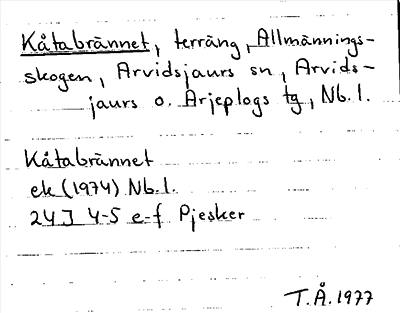 Kåtabrännet, terräng, Allmännings-
skogen, Arvidsjaurs sn, Arvids-
jaurs o. Arjeplogs tg, Nb. l.
Kåtabrännet
ek (1974) Nb. l.
24J 4-5 e-f Pjesker
T.Å. 1977